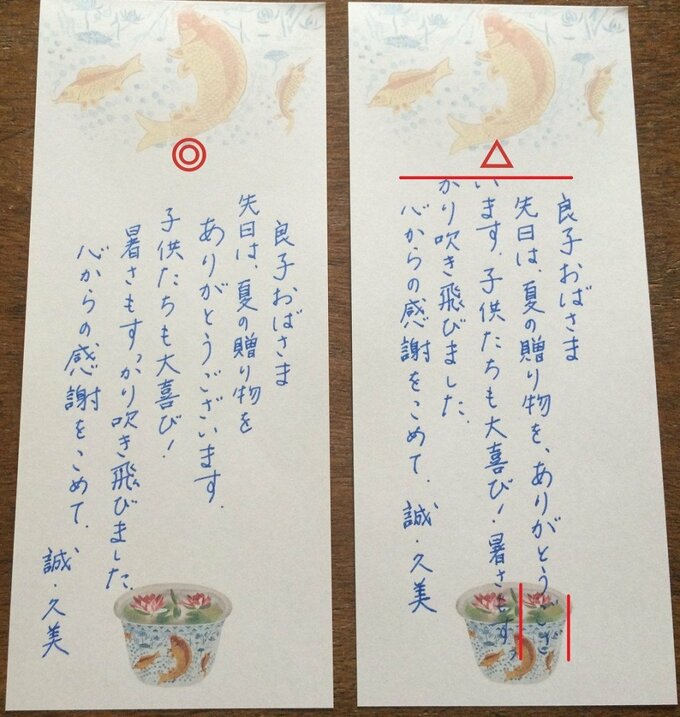 ◎
良子おばさま
先日は、夏の贈り物を
ありがとうございます。
子供たちも大喜び！
暑さもすっかり吹き飛びました。
心からの感謝をこめて。 誠・久美
△
良子おばさま
先日は、夏の贈り物を、ありがとうござ
います。子供たちも大喜び！暑さもすっ
かり吹き飛びました。
心からの感謝をこめて。 誠・久美